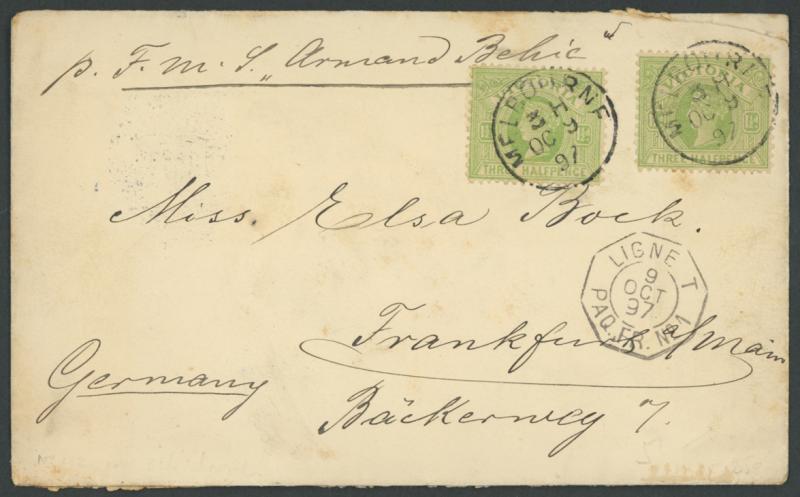 p. F. M. S. „Armand Behic"
VICTORIA
THREE HALFPENCE
MELBOURNE
OC
97
VICTORIA
THREE HALFPENCE
MELBOURNE
OC
97
Miss. Elsa Bock.
LIGNE T
9
OCT
97
PAQ. FR. Nº1
Frankfurt a/Main
Germany
Bäckerweg 7.